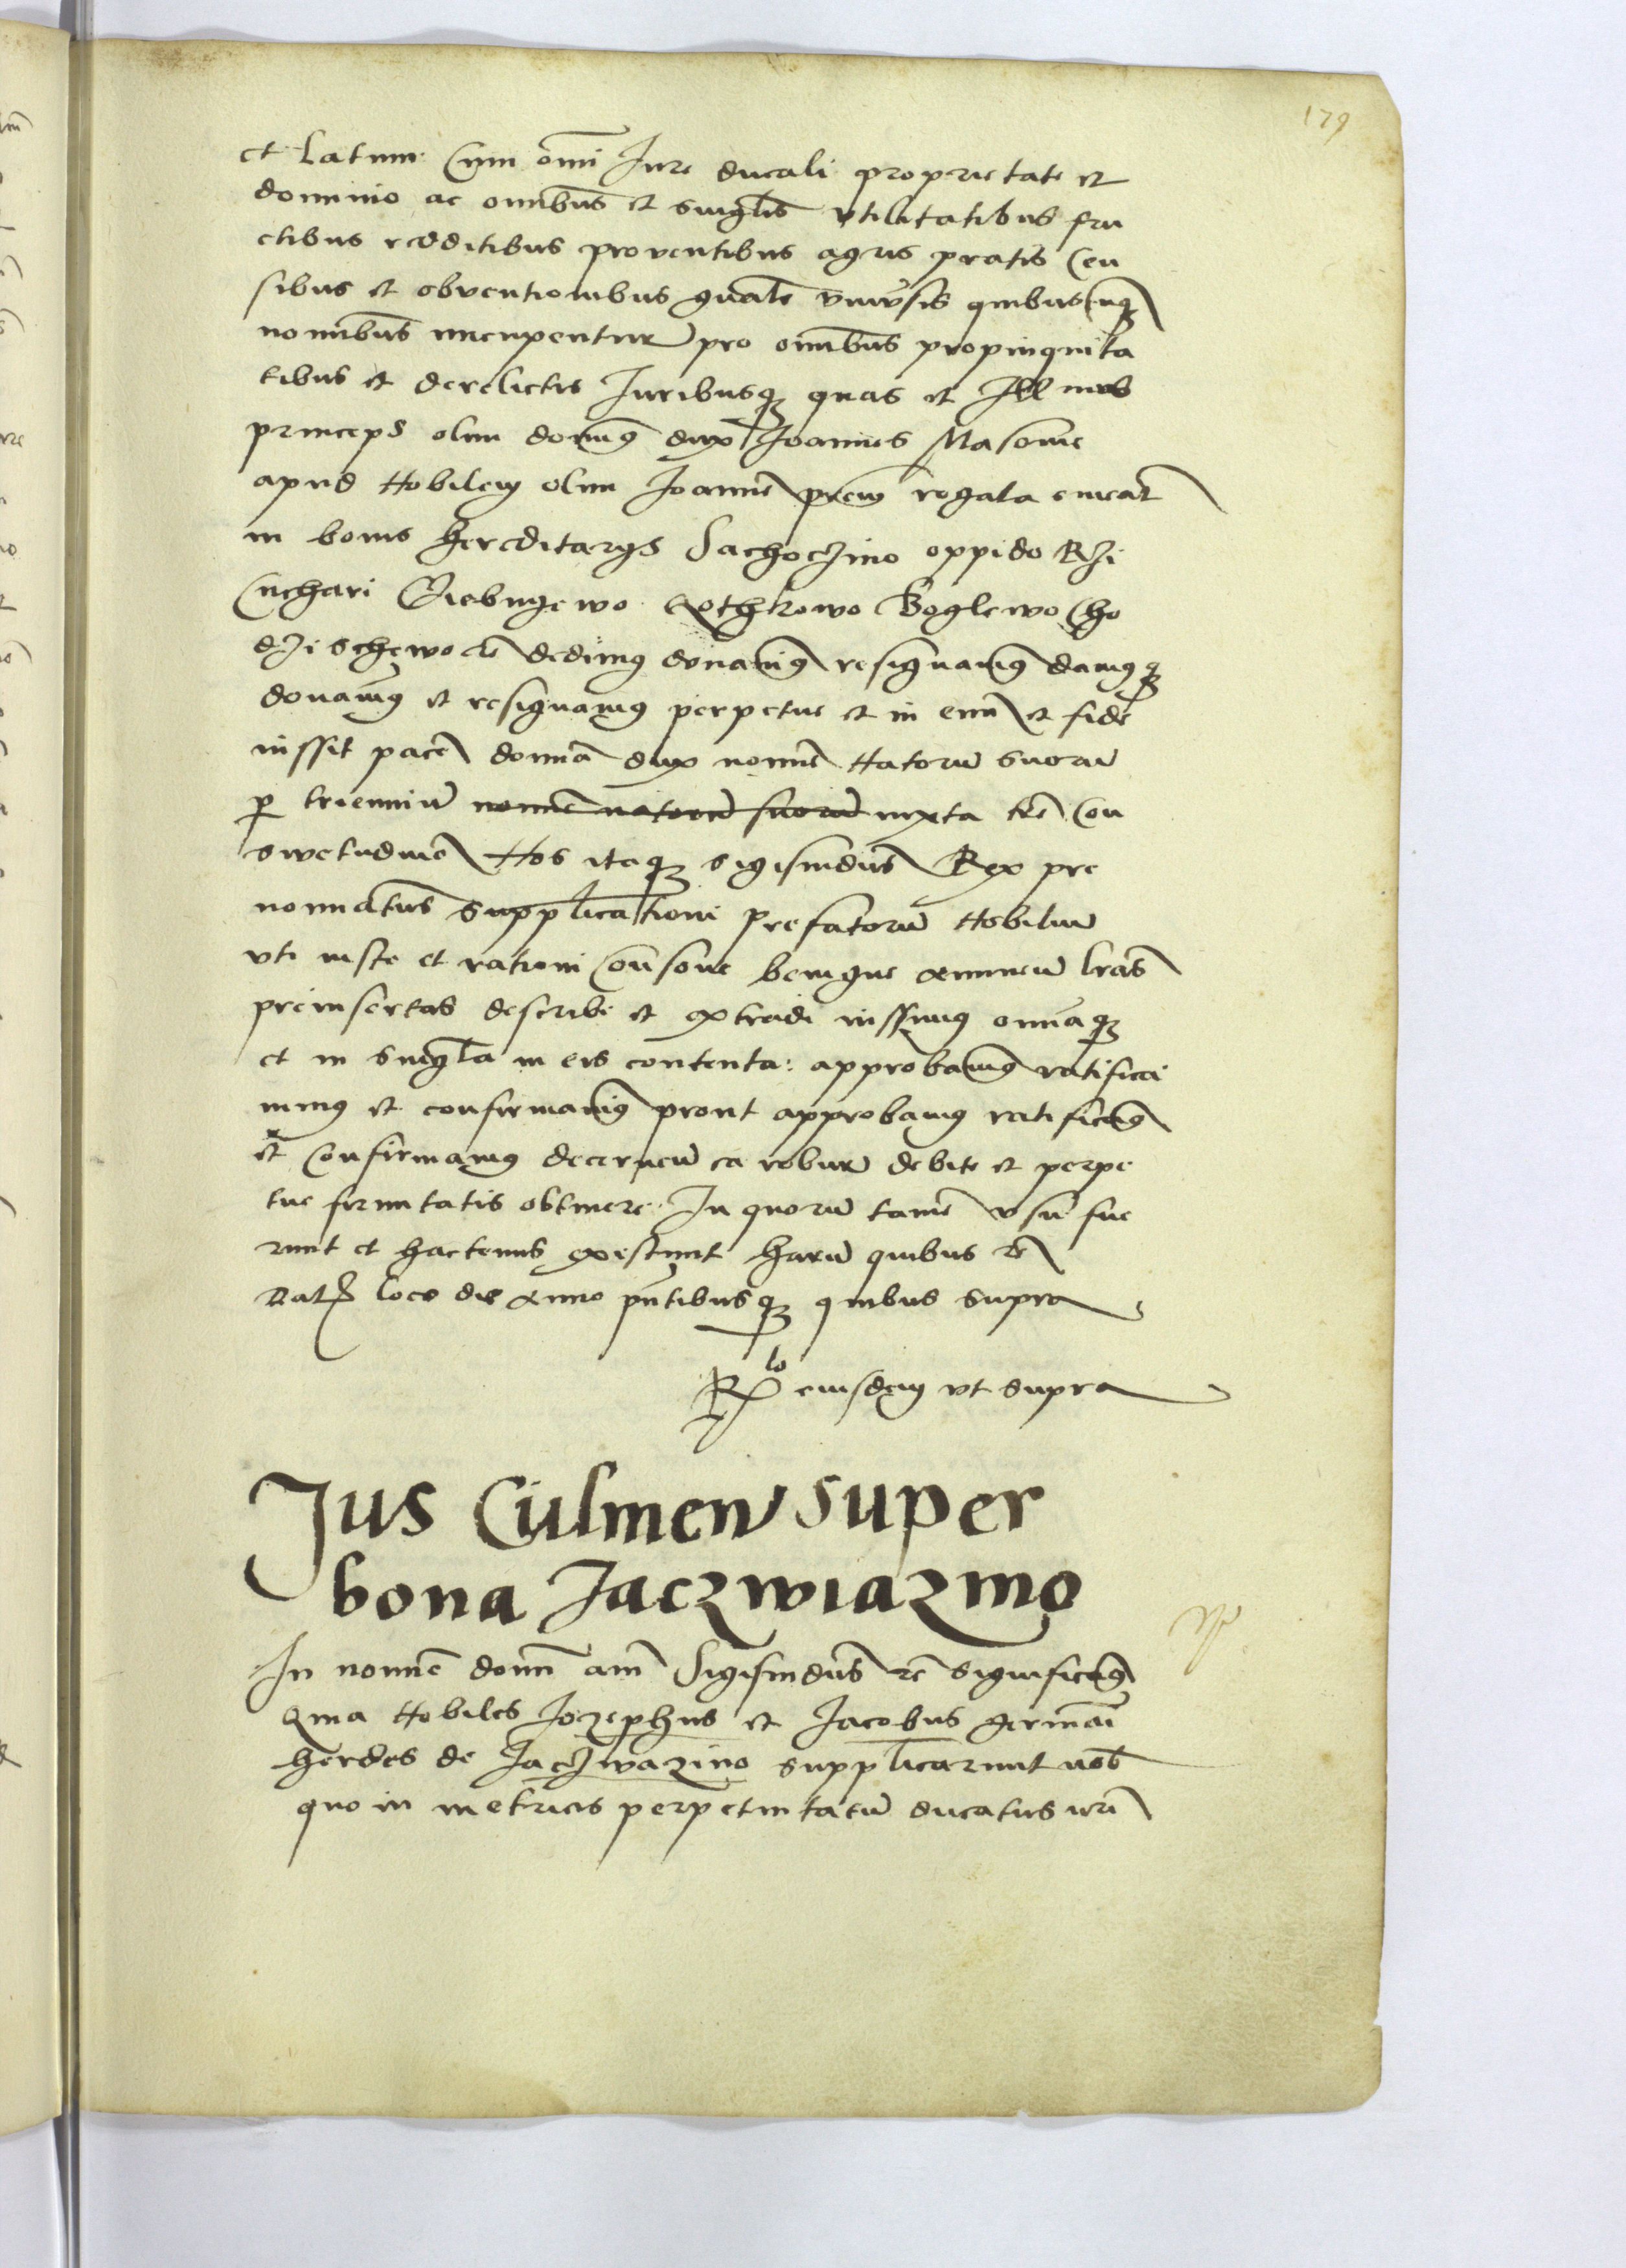 179
et latum Cum omi Jure ducali proprietate et
dominio ac omnibus et singlis vtilitatibus fru
ctibus redditibus proventibus agris pratis Cen
sibus et obventionibus gnalr vniuersis quibuscuqz
nominibus nuncupentur pro omnibus propinquita
tibus et derelictis Juribusqz quas et Illmus
princeps olim dominus dux Joannes Masouie
apud Nobilem olim Joanne prem rogata
in bonis hereditarys Sachoczino oppido Rzi
Cuchari Gothkowo Boglewo Cho
dzischewo etc dedimus donauimus resignauimus damusqz
donamus et resignamus perpetue et in eum et fide
iussit pacem domina dux nomine Natoru suoru
p trienniu nomine natoru suoru iuxta tre Con
swetudine Nos itaqz sigismdus Rex pre
nominatus supplicationi prefatoru Nobiliu
vti iuste et rationi Consone benigne annuen lras
preinsertas describi et extradi iussimus omniaqz
et in singla in eis contenta: approbauimus ratifica
uimus et confirmauimus prout approbamus ratificamus
et Confirmamus decernen ea robur debite et perpe
tue firmitatis obtinere. In quoru tamen vsu fue
runt et hactenus existunt haru quibus etc
Dat loco die Anno pntibusqz quibus supra
Rlo eiusdem vt supra
Jus Culmen super
bona Jaczwiazino
In nomine domi am Sigismdus etc significamus
Quia Nobiles Jozephus et Jacobus germani
herdes de Jaczwazino supplicarunt nob
quo in metricis perpetuitatum ducatus nri